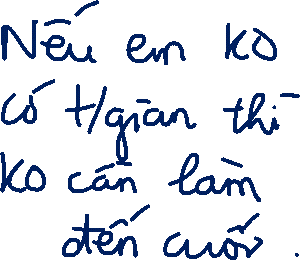 Nếu em ko
có t/gian thì
ko cần làm
đến cuối.